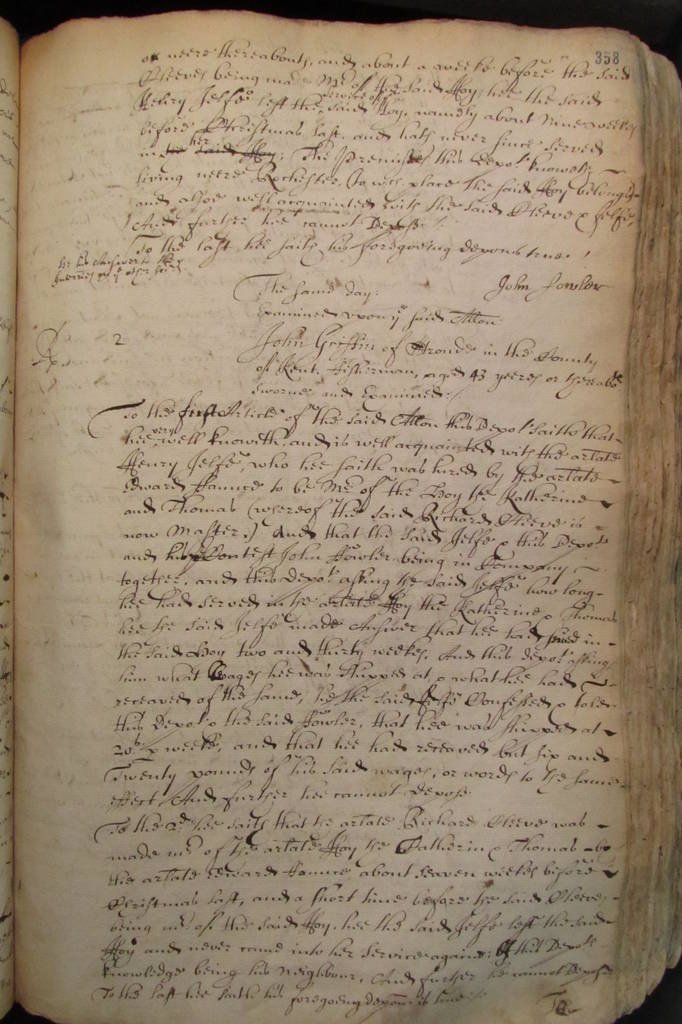 358
or neere thereabouts, and about a weeke before the said
Cleeve being made Mr of the said Hoy, hee the said
Henry Jelfe left the service of the said Hoy, namely about Nine weekes
before Christmas last, and hath never since served
in her the said Hoy. The Premisses this Depot knoweth
living neere Rochester, to wch place the said Hoy belongs
and alsoe well acquainted with the said Cleeve & Jelfe,
And further hee cannot Depose.
To the last hee saith his foregoeing deposn is true.
John Fowler
The same day.
Examined upon ye said Allon
2
John Griffin of Stroude in the County
of Kent, Fisherman, aged 43 yeeres or thereabts
sworne and Examined.
To the first Article of the said Allon this Depot saith that
hee very well knoweth, and is well acquainted with the artate
Henry Jelfe, who hee saith was hired by the artate
Edward to be Mr of the Hoy the Katherine
and Thomas (whereof the said Richard Cleeve is
now Master.) And that the said Jelfe & this Depot
and his Contest John Fowler being in Company
together, and this depot asking the said Jelfe how long
hee had served in the artate Hoy the Katherine & Thomas
hee the said Jelfe made Answer that hee had served in
the said Hoy two and thirty weekes, And this depot asking
him what Wages hee was Shipped at, & what hee had
receaved of the same, hee the said Jelfe Confessed & told
this Depot & the said Fowler, that hee was shipped at
20s p weeke, and that hee had receaved but six and
Twenty pounds of his said wages, or words to the same
effect, And further hee cannot depose.
To the 2d hee saith that the artate Richard Cleeve was
made mr of the artate Hoy the Katherin & Thomas by
the artate Edward about seaven weekes before
Christmas last, and a short time before the said Cleeve
being mr of the said Hoy, hee the said Jelfe left the said
Hoy and never came into her service againe. Of this Depots
knowledge being his Neighbour, And further he cannot Depose
To the last hee saith his foregoeing deposn is true.
To